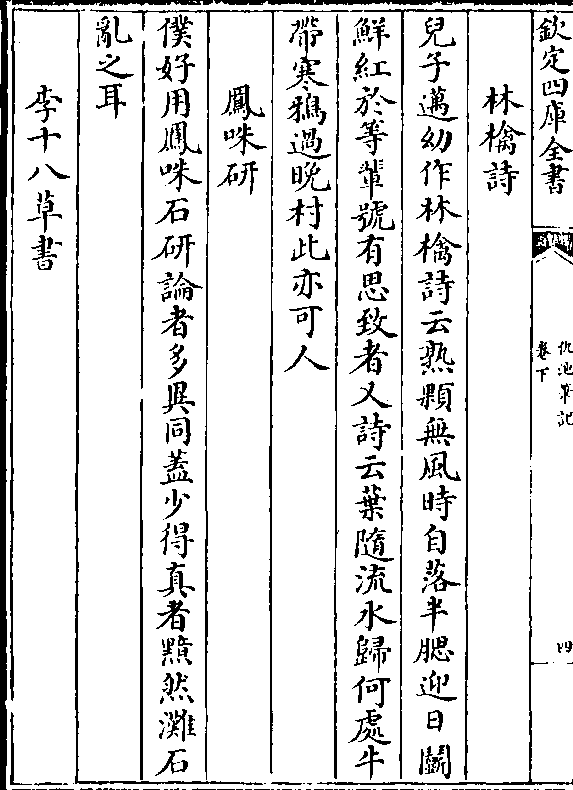 欽定四庫全書
仇池筆記
卷下
四
林檎詩
兒子邁幼作林檎詩云熟顆無風時自落半腮迎日鬬
鮮紅於等輩號有思致者又詩云葉隨流水歸何處牛
帶寒鴉過晚村此亦可人
鳳咮研
僕好用鳳咮石研論者多異同蓋少得真者黯然灘石
亂之耳
李十八草書